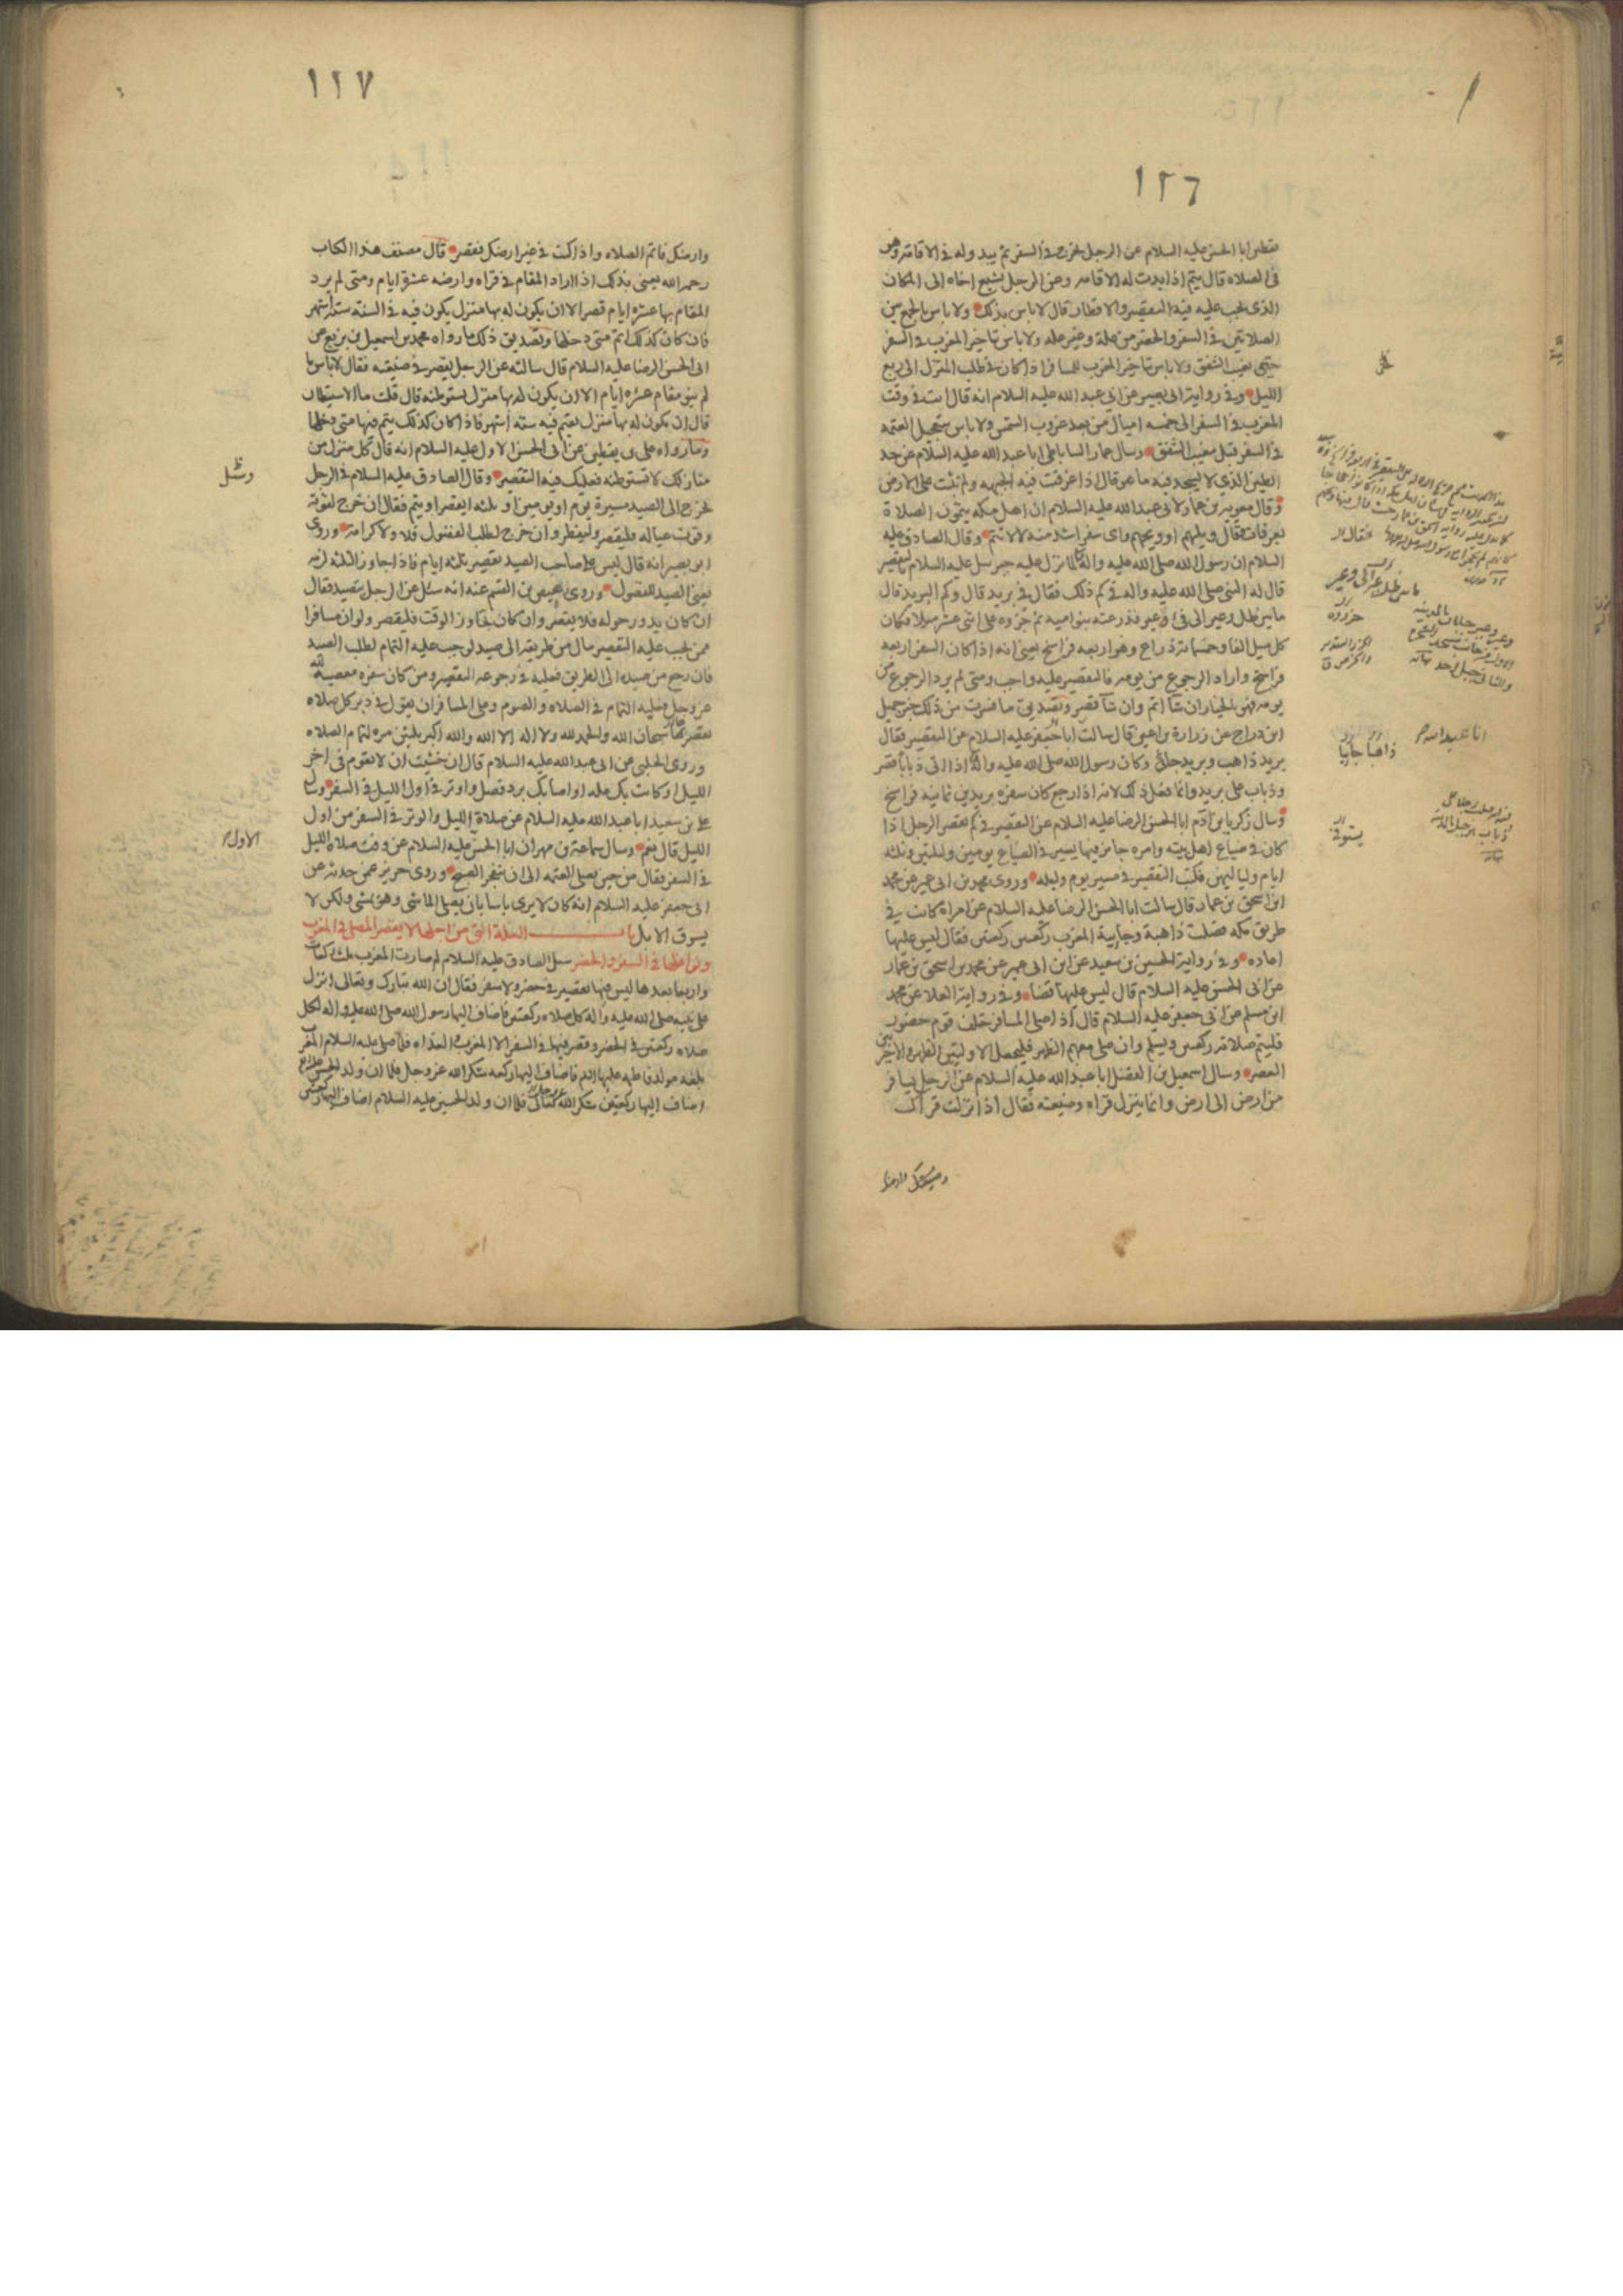 ١٢٦
يقطين ابا الحسن عليه السلام عن الرجل يخرج في السفر ثم يبدو له في الاقامة وهو
في الصلاة قال يتم اذا بدت له الاقامه وعن الرجل يشيع اخاه الى المكان
الذي يجب عليه فيه التقصير والافطار قال لا باس بذلك ولا باس بالجمع بين
الصلاتين في السفر والحضر من علة وغير علة ولا باس بتاخير المغرب في السفر
حتى يغيب الشفق ولا باس بتاخير المغرب للمسافر اذا كان في طلب المنزل الى ربع
الليل وفي رواية ابي بصير عن ابي عبد الله عليه السلام انه قال انت في وقت
المغرب في السفر الى خمسه اميال من بعد غروب الشمس ولا باس بتعجيل العتمه
في السفر قبل مغيب الشفق وسال عمار الساباطي ابا عبد الله عليه السلام عن حد
الطين الذي لا يسجد فيه ما هو قال اذا غرقت فيه الجبهه ولم تثبت على الارض
وقال معوية بن عمار لابي عبد الله عليه السلام ان اهل مكه يتمون الصلاة
بعرفات فقال ويلهم او ويحهم واي سفر اشد منه لا لا تتم وقال الصادق عليه
السلام ان رسول الله صلى الله عليه واله لما نزل عليه جبرئيل عليه السلام بالتقصير
قال له النبي صلى الله عليه واله في كم ذلك فقال في بريد قال وكم البريد قال
ما بين ظل وعير الى في ء وعير فذرعته بنو اميه ثم جزوه على اثنى عشر ميلا فكان
كل ميل الفا وخمسمائة ذراع وهو اربعه فراسخ يعني انه اذا كان السفر اربعه
فراسخ واراد الرجوع من يومه فالتقصير عليه واجب ومتى لم يرد الرجوع من
يومه فهو بالخيار ان شآ اتم وان شآ قصر وتصديق ما فسرت من ذلك خبر جميل
ابن دراج عن زرارة بن اعين قال سالت ابا جعفر عليه السلام عن التقصير فقال
بريد ذاهب وبريد جائي وكان رسول الله صلى الله عليه واله اذا اتى ذبابا قصر
وذباب على بريد وانما فعل ذلك لانه اذا رجع كان سفره بريدين ثمانيه فراسخ
وسال زكريا بن آدم ابا الحسن الرضا عليه السلام عن التقصير في كم يقصر الرجل اذا
كان في ضياع اهل بيته وامره جائز فيها يسير في الضياع يومين وليلتين وثلثه
ايام ولياليهن فكتب التقصير في مسير يوم وليله وروى محمد بن ابي عمير عن محمد
ابن اسحق بن عمار قال سالت ابا الحسن الرضا عليه السلام عن امراة كانت في
طريق مكه فصلت ذاهبة وجايية المغرب ركعتين ركعتين فقال ليس عليها
اعاده وفي رواية الحسين بن سعيد عن ابن ابي عمير عن محمد بن اسحق بن عمار
عن ابي الحسن عليه السلام قال ليس عليها قضا وفي رواية العلا عن محمد
ابن مسلم عن ابي جعفر عليه السلام قال اذا صلى المسافر خلف قوم حضور
فليتم صلاته ركعتين ويسلم وان صلى معهم الظهر فليجعل الاولتين الظهر والاخيرتين
العصر وسال اسمعيل بن الفضل ابا عبد الله عليه السلام عن الرجل يسافر
من ارض الى ارض وانما ينزل قراه وضيعته فقال اذا نزلت قراك
وضيعتك وارضك
ذاهبا جايبا
١٢٧
وارضك فاتم الصلاه واذا كنت في غير ارضك فقصر قال مصنف هذا الكتاب
رحمه الله يعني بذلك اذا اراد المقام في قراه وارضه عشرة ايام ومتى لم يرد
المقام بها عشره ايام قصر الا ان يكون له بها منزل يكون فيه في السنة ستة اشهر
فان كان كذلك اتم متى دخلها وتصديق ذلك ما رواه محمد بن اسمعيل بن بزيع عن
ابي الحسن الرضا عليه السلام قال سالته عن الرجل يقصر في ضيعته فقال لا باس ما
لم ينو مقام عشره ايام الا ان يكون له بها منزل يستوطنه قال قلت ما الاستيطان
قال ان يكون له بها منزل يقيم فيه ستة اشهر فاذا كان كذلك يتم فيها متى دخلها
وما رواه علي بن يقطين عن ابي الحسن الاول عليه السلام انه قال كل منزل من
منازلك لا تستوطنه فعليك فيه التقصير وقال الصادق عليه السلام في الرجل
يخرج الى الصيد مسيرة يوم او يومين او ثلثه ايقصر او يتم فقال ان خرج لقوته
وقوت عياله فليقصر وليفطر وان خرج لطلب الفضول فلا ولا كرامة وروى
ابو بصير انه قال ليس على صاحب الصيد تقصير ثلثه ايام فاذا جاوز الثلثه لزمه
يعني الصيد للفضول وروى عيص بن القسم عنه انه سئل عن الرجل يتصيد فقال
ان كان يدور حوله فلا يقصر وان كان تجاوز الوقت فليقصر ولو ان مسافرا
ممن يجب عليه التقصير مال من طريقه الى صيد لوجب عليه التمام لطلب الصيد
فان رجع من صيده الى الطريق فعليه في رجوعه التقصير ومن كان سفره معصية لله
عز وجل فعليه التمام في الصلاه والصوم وعلى المسافر ان يقول في دبر كل صلاه
يقصرها سبحان الله والحمد لله ولا اله الا الله والله اكبر ثلثين مره لتمام الصلاه
وروى الحلبي عن ابي عبد الله عليه السلام قال ان خشيت ان لا تقوم في اخر
الليل او كانت بك عله او اصابك برد فصل واوتر في اول الليل في السفر وسال
علي بن سعيد ابا عبد الله عليه السلام عن صلاة الليل والوتر في السفر من اول
الليل قال نعم وسال سماعة بن مهران ابا الحسن عليه السلام عن وقت صلاة الليل
الاول
في السفر فقال من حين يصلي العتمه الى ان ينفجر الصبح وروى حريز عمن حدثه عن
ابي جعفر عليه السلام انه كان لا يرى باسا بان يصلي الماشي وهو يمشي ولكن لا
يسوق الابل باب العلة التي من اجلها لا يقصر المصلي في المغرب
ونوافلها في السفر والحضر سئل الصادق عليه السلام لم صارت المغرب ثلث ركعات
واربعا بعدها ليس فيها تقصير في حضر ولا سفر فقال ان الله تبارك وتعالى انزل
على نبيه صلى الله عليه واله كل صلاه ركعتين فاضاف اليها رسول الله صلى الله عليه واله لكل
صلاه ركعتين في الحضر وقصر فيها في السفر الا المغرب والغداه فلما صلى عليه السلام المغرب
بلغه مولد فاطمه عليها السلم فاضاف اليها ركعه شكرا لله عز وجل فلما ان ولد الحسن عليه السلام
اضاف اليها ركعتين شكرا لله تعالى فلما ان ولد الحسين عليه السلام اضاف اليها ركعتين